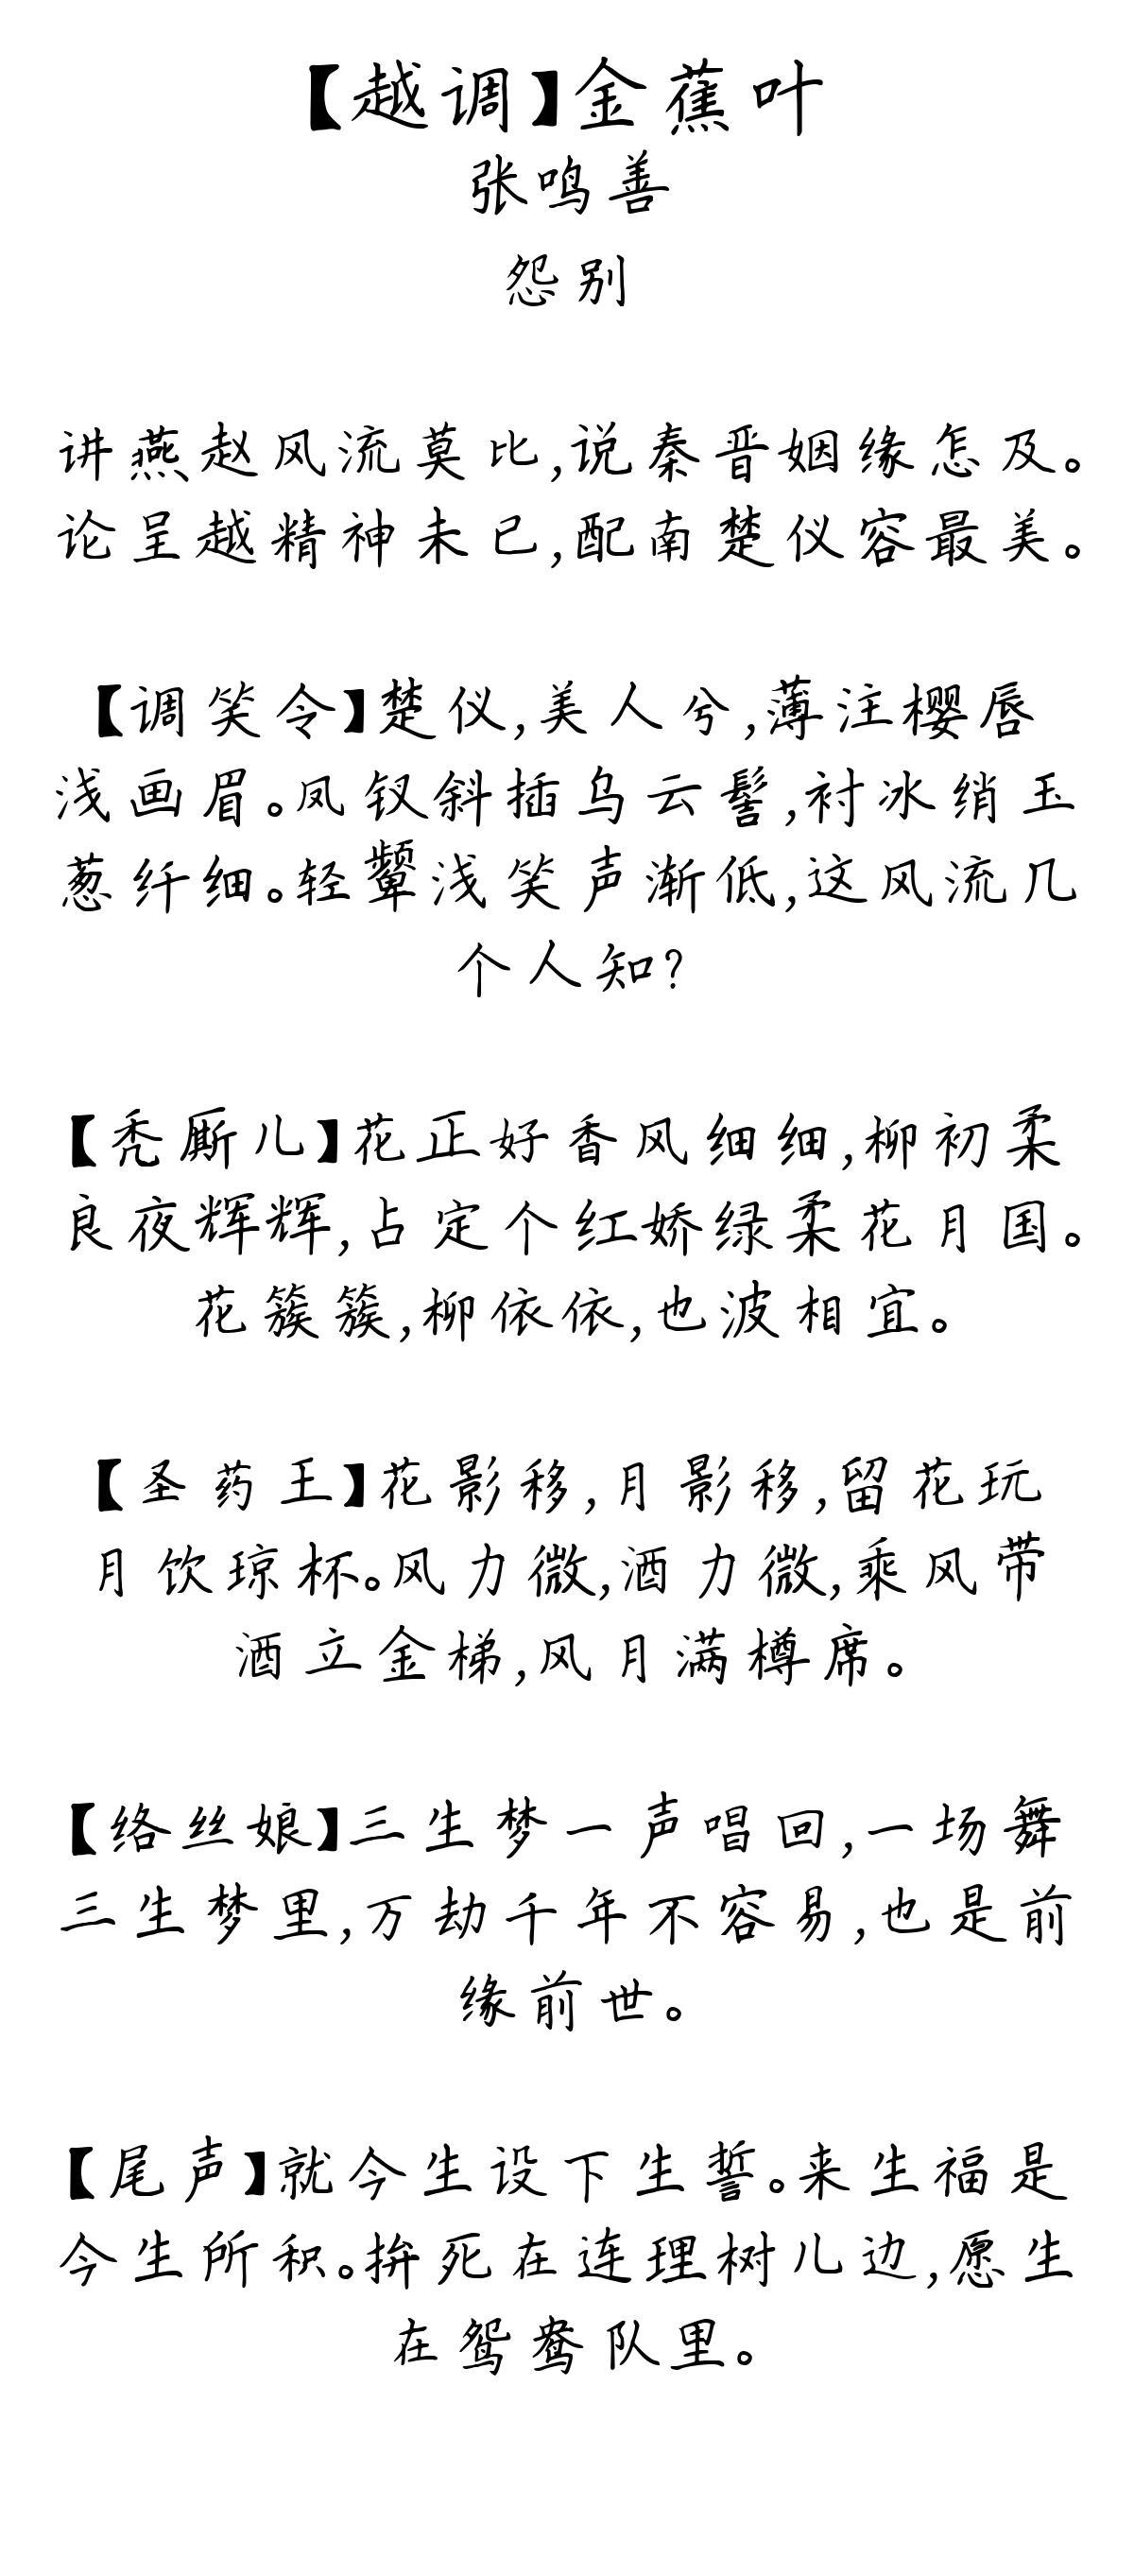 【越调】金蕉叶
张鸣善
怨别
讲燕赵风流莫比,说秦晋姻缘怎及。
论呈越精神未已,配南楚仪容最美。
【调笑令】楚仪,美人兮,薄注樱唇
浅画眉。凤钗斜插乌云髻,衬冰绡玉
葱纤细。轻颦浅笑声渐低,这风流几
个人知?
【秃厮儿】花正好香风细细,柳初柔
良夜辉辉,占定个红娇绿柔花月国。
花簇簇,柳依依,也波相宜。
【圣药王】花影移,月影移,留花玩
月饮琼杯。风力微,酒力微,乘风带
酒立金梯,风月满樽席。
【络丝娘】三生梦一声唱回,一场舞
三生梦里,万劫千年不容易,也是前
缘前世。
【尾声】就今生设下生誓。来生福是
今生所积。拚死在连理树儿边,愿生
在鸳鸯队里。